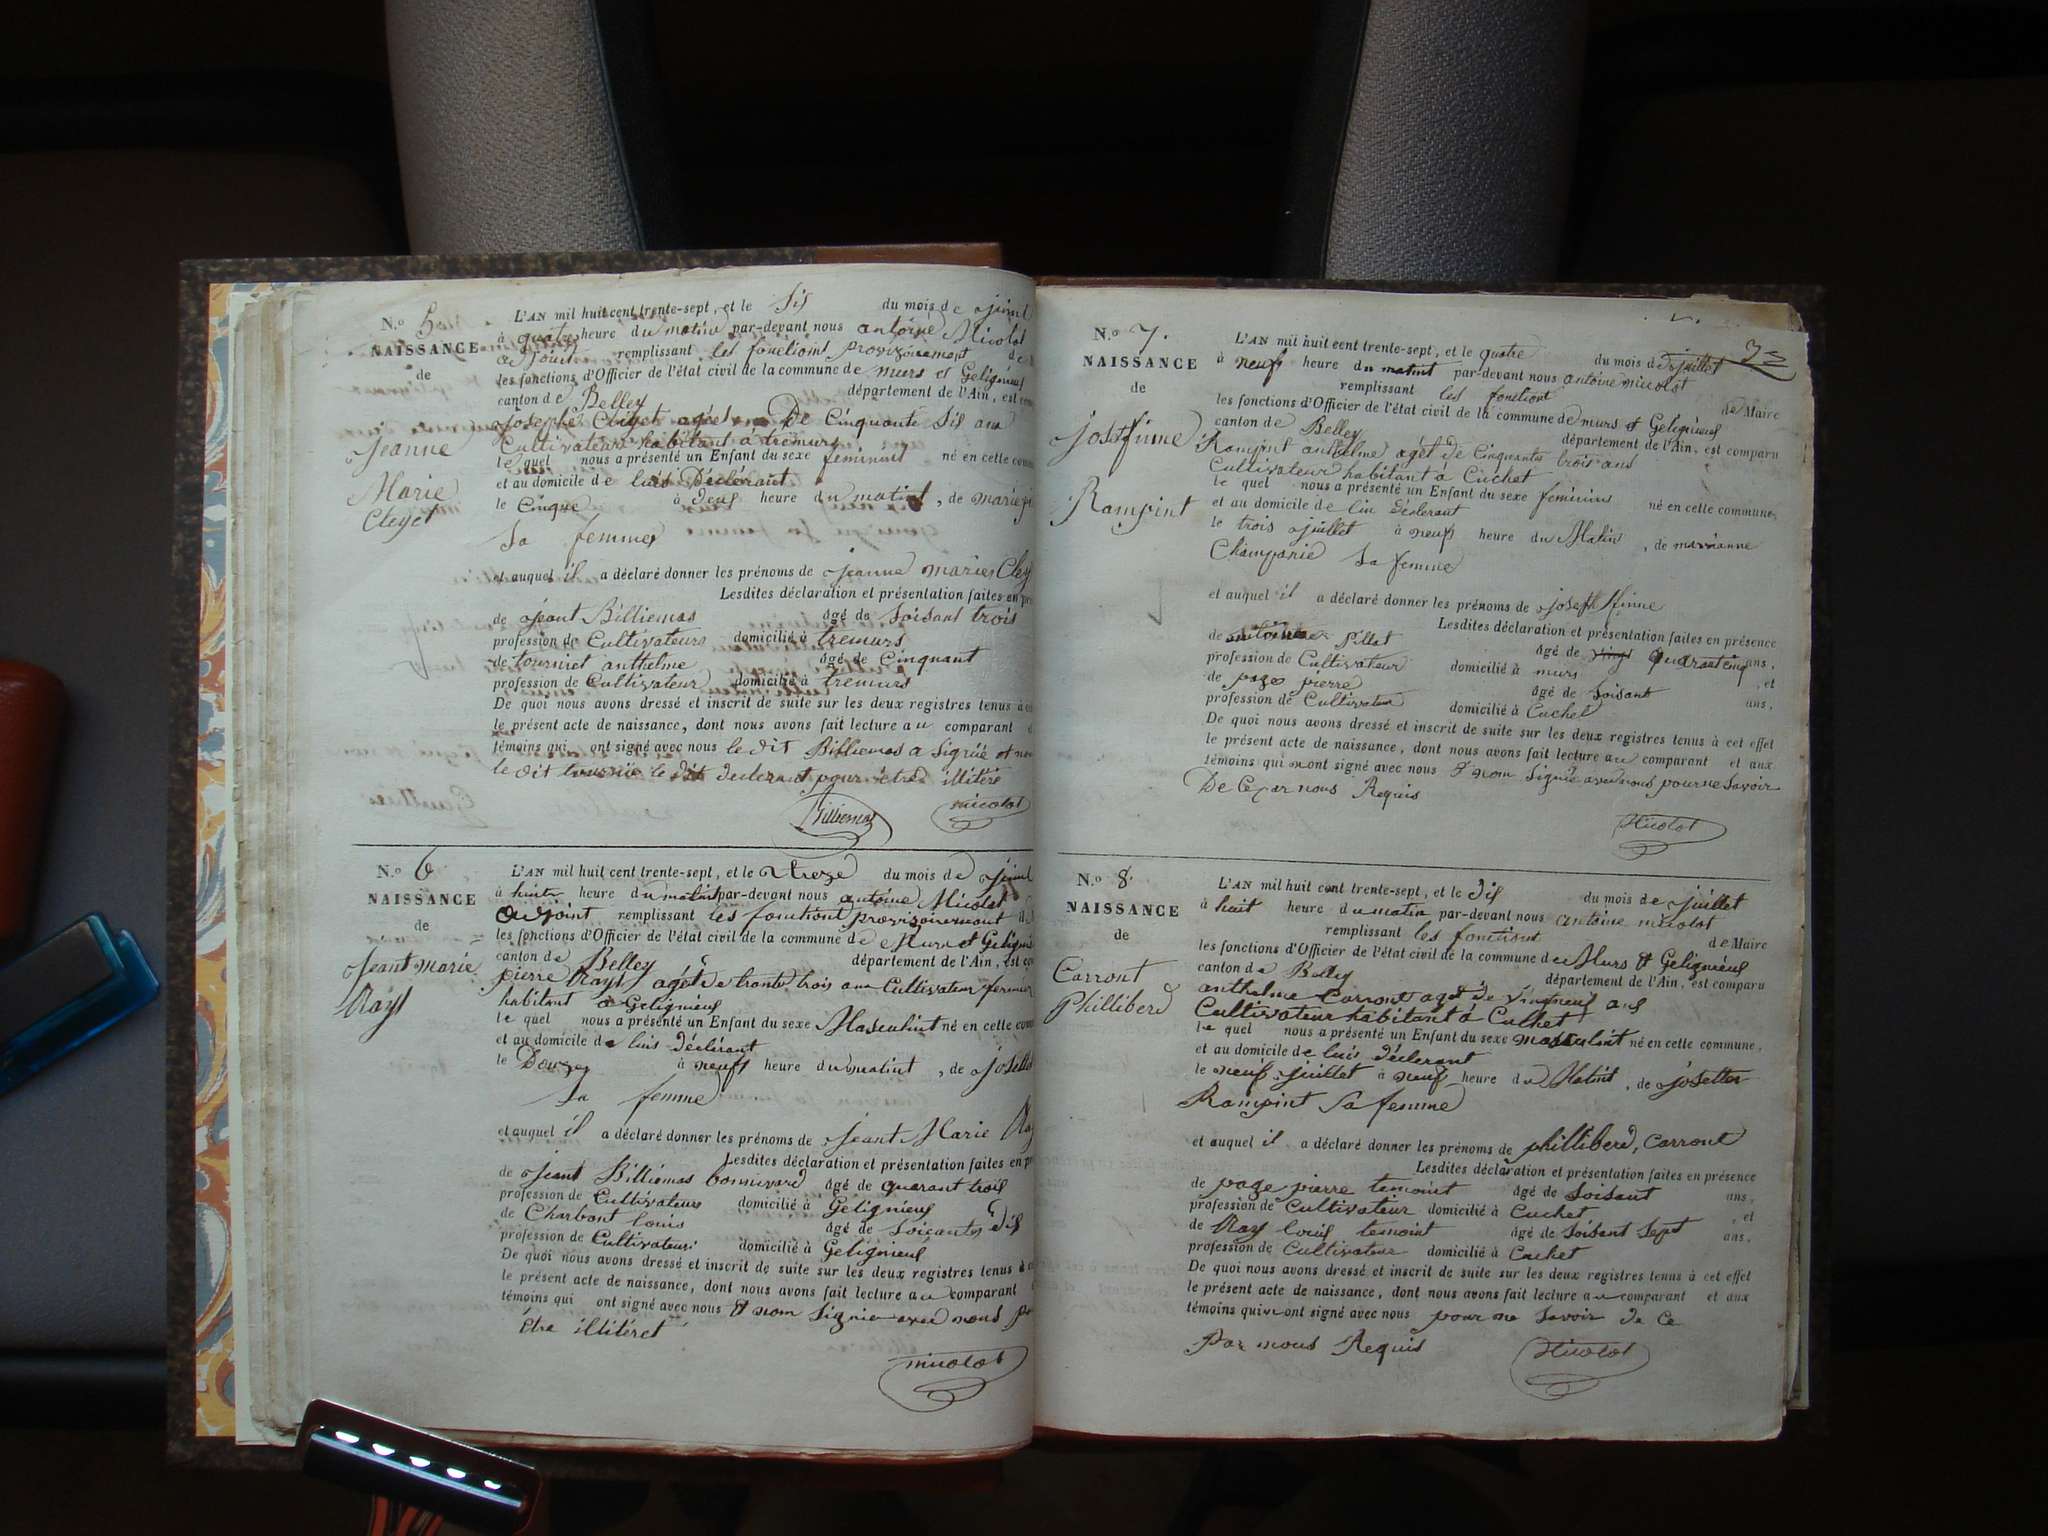 N.o 5
NAISSANCE
de
Jeanne
Marie
Cleyet
L'AN mil huit cent trente-sept, et le Sis du mois de juint
à quatre heure du matin par-devant nous antoine Micolot
adjoint remplissant les fonctions provisoirement de
les fonctions d'Officier de l'état civil de la commune de murs et Geligneus
canton de Belley département de l'Ain, est com
Josephe Cleyet agée De Cinquante Sis ans
Cultivateur habitant à tremurs
le quel nous a présenté un Enfant du sexe feminint né en cette comm
et au domicile de luis Déclérant
le Cinque à deus heure du matint, de marie
Sa femme
et auquel il a déclaré donner les prénoms de jeanne marie Cley
Lesdites déclaration et présentation faites en pré
de jeant Billiemas âgé de Soisant trois
profession de Cultivateurs domicilié à tremurs
de tournier anthelme âgé de Cinquant
profession de Cultivateur domicilié à tremurs
De quoi nous avons dressé et inscrit de suite sur les deux registres tenus à ce
le présent acte de naissance, dont nous avons fait lecture au comparant
témoins qui ont signé avec nous le dit Billiemas a Signée et non
le dit tournie le dit declerant pour être illitéré
Billiemas micolot
N.o 6
NAISSANCE
de
Jeant marie
Rays
L'AN mil huit cent trente-sept, et le treze du mois de juint
à huite heure du matint par-devant nous antoine Micolot
adjoint remplissant les fonctiont provisoirement de
les fonctions d'Officier de l'état civil de la commune de Murs et Geligne
canton de Belley département de l'Ain, est com
pierre Rays agét de trante trois ans Cultivateur fermier
habitant à Geligneus
le quel nous a présenté un Enfant du sexe Masculint né en cette comm
et au domicile de luis déclérant
le Douze à neufs heure du matint, de josette
Sa femme
et auquel il a déclaré donner les prénoms de jeant Marie Ray
Lesdites déclaration et présentation faites en pr
de jeant Billiemas bonnivard âgé de quarant trois
profession de Cultivateurs domicilié à Geligneus
de Charbont louis âgé de Soicante dis
profession de Cultivateurs domicilié à Geligneus
De quoi nous avons dressé et inscrit de suite sur les deux registres tenus à ce
le présent acte de naissance, dont nous avons fait lecture au comparant
témoins qui ont signé avec nous & nom Signie avec nous
être illitéret
micolot
3
N.o 7.
NAISSANCE
de
josetfinne
Rampint
L'AN mil huit cent trente-sept, et le quatre du mois de juillet
à neuf heure du matint par-devant nous antoine micolot
remplissant les fonctiont de Maire
les fonctions d'Officier de l'état civil de la commune de murs et Geligneus
canton de Belley département de l'Ain, est comparu
Rampint anthelme agét de Cinquante trois ans
Cultivateur habitant à Cuchet
le quel nous a présenté un Enfant du sexe feminins né en cette commune,
et au domicile de lui déclerant
le trois juillet à neufs heure du Matin, de marianne
Champanie Sa femme
et auquel il a déclaré donner les prénoms de josefhfinne
Lesdites déclaration et présentation faites en présence
de antoinne pillat âgé de vingt quarantcinq ans,
profession de Cultivateur domicilié à murs, et
de page pierre âgé de Soisant ans,
profession de Cultivateur domicilié à Cuchet
De quoi nous avons dressé et inscrit de suite sur les deux registres tenus à cet effet
le présent acte de naissance, dont nous avons fait lecture au comparant et aux
témoins qui nont signé avec nous & nom Signée avec nous pour ne Savoir
De Ce par nous Requis
Micolot
N.o 8
NAISSANCE
de
Carront
Philliberd
L'AN mil huit cent trente-sept, et le dis du mois de juillet
à huit heure du matin par-devant nous antoine micolot
remplissant les fonctions de Maire
les fonctions d'Officier de l'état civil de la commune de Murs et Geligneus
canton de Belley département de l'Ain, est comparu
anthelme Carront agét de vingneuf ans
Cultivateur habitant à Cuchet
le quel nous a présenté un Enfant du sexe masculint né en cette commune,
et au domicile de luis déclerant
le neuf juillet à neuf heure du Matint, de josette
Rampint Sa femme
et auquel il a déclaré donner les prénoms de philliberd, Carront
Lesdites déclaration et présentation faites en présence
de page pierre temoint âgé de Soisant ans,
profession de Cultivateur domicilié à Cuchet, et
de Rays louis temoint âgé de Soisant Sept ans,
profession de Cultivateur domicilié à Cuchet
De quoi nous avons dressé et inscrit de suite sur les deux registres tenus à cet effet
le présent acte de naissance, dont nous avons fait lecture au comparant et aux
témoins qui nont signé avec nous pour ne Savoir de Ce
Par nous Requis
Micolot